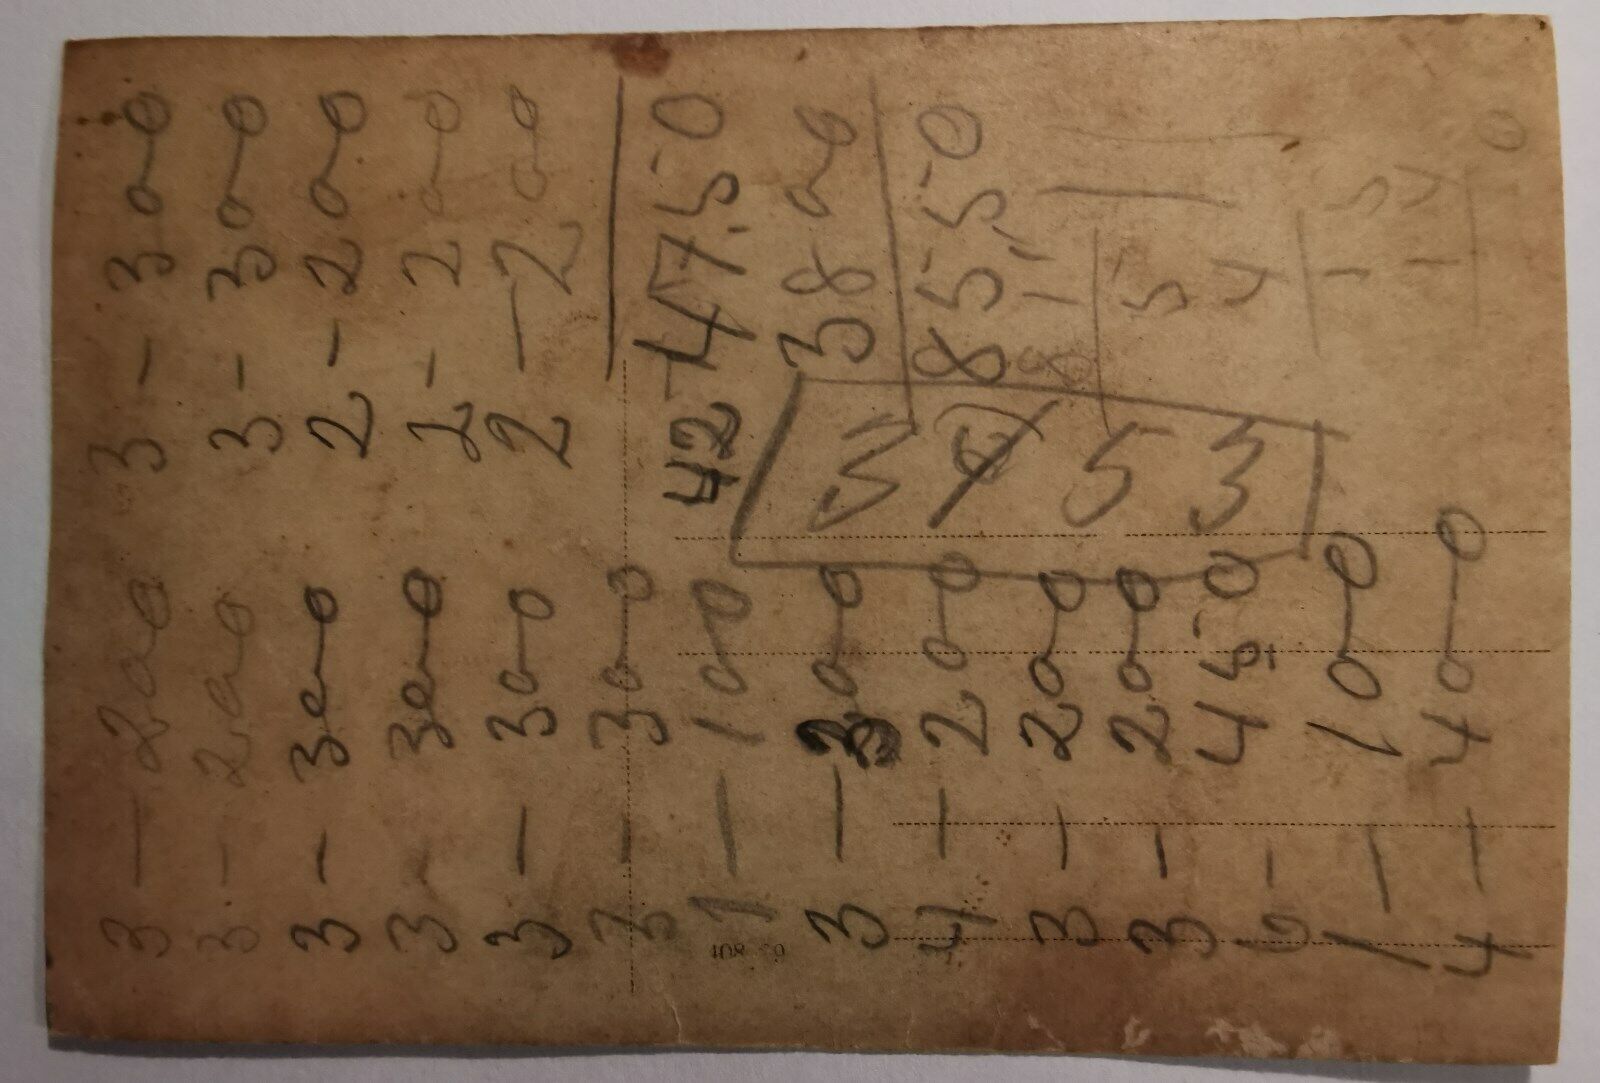 3 — 200
3 - 200
3 - 300
3 - 300
3 - 300
3 - 300
1 - 100
3 - 300
4 - 200
3 - 200
3 - 200
450
1 - 100
4 - 400
3 - 300
3 - 300
2 - 200
2 - 200
2 - 200
42 47.50
38 00
85.50
5
4
15
14
5
5
3